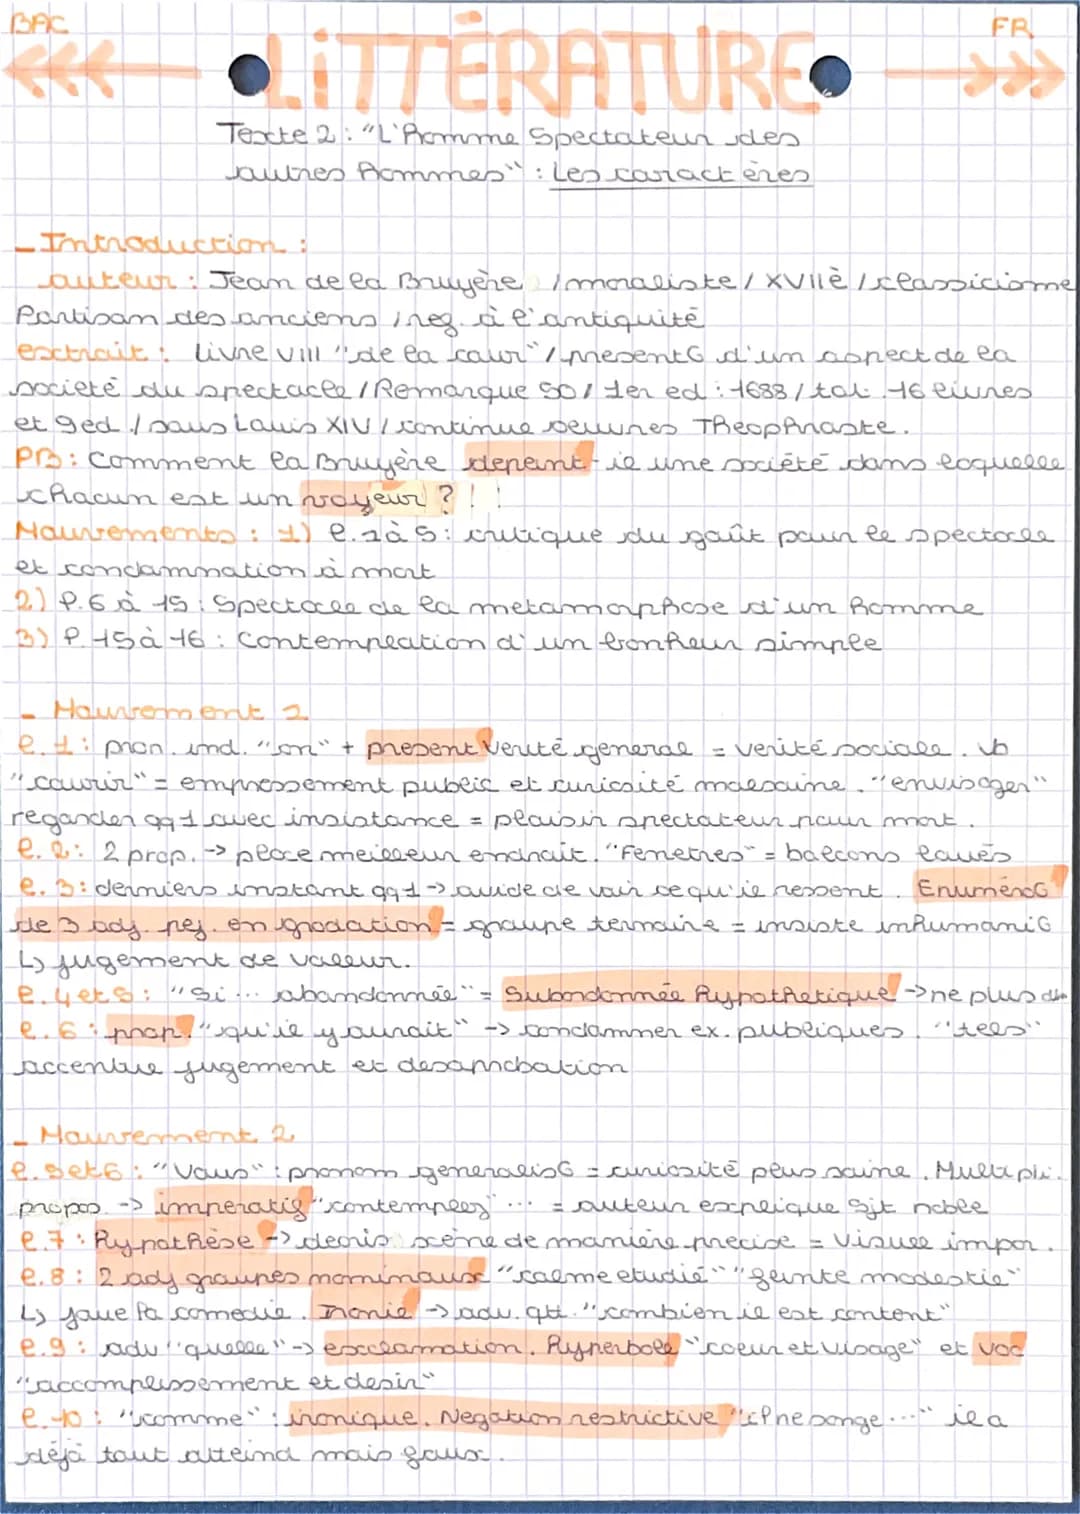 BAC FR
LITTÉRATURE
Texte 2 : "L'Homme Spectateur des
autres hommes" : Les caractères
- Introduction :
auteur : Jean de la Bruyère / moraliste / XVIIè / classicisme
Partisan des anciens / reg. à l'antiquité
extrait : livre VIII "de la cour" / présentG d'un aspect de la
société du spectacle / Remarque 50 / 1er ed : 1688 / tot. 16 livres
et 9ed / sous Louis XIV / continue oeuvres Théophraste.
PB : Comment la Bruyère depeint-il une société dans laquelle
chacun est un voyeur ?
Mouvements : 1) l.1 à 5 : critique du goût pour le spectacle
et condamnation à mort
2) l.6 à 15 : Spectacle de la metamorphose d'un homme
3) l.15 à 16 : Contemplation d'un bonheur simple
- Mouvement 1
l.1 : pron. ind. "on" + present verité general = verité sociale. Vb
"courir" = empressement public et curiosité malsaine. "envisager"
regarder qq1 avec insistance = plaisir spectateur pour mort.
l.2 : 2 prop. -> place meilleur endroit. "Fenetres" = balcons loués
l.3 : derniers instant qq1 -> avide de voir ce qu'il ressent. EnumérG
de 3 adj. pej. en gradation = groupe ternaire = insiste inhumaniG
↳ jugement de valeur.
l.4 et 5 : "Si ... abandonnée" = Subordonnée hypothetique -> ne plus
l.6 : prop. "qu'il y aurait" -> condamner ex. publiques. "tels"
accentue jugement et desaprobation
- Mouvement 2
l.5 et 6 : "Vous" : pronom generalisG = curiosité plus saine. Multipli.
propos. -> imperatif "contemplez" ... = auteur explique sjt noble
l.7 : Hypothèse -> decris scène de manière precise = visuel impor.
l.8 : 2 adj groupes nominaux "calme etudié" "feinte modestie"
↳ joue la comedie. Ironie -> adv. qtt. "combien il est content"
l.9 : adv "quelle" -> exclamation. Hyperbole "coeur et visage" et voc
"accomplissement et desir"
l.10 : "comme" : ironique. Negation restrictive "il ne songe..." il a
déjà tout atteind mais faux.